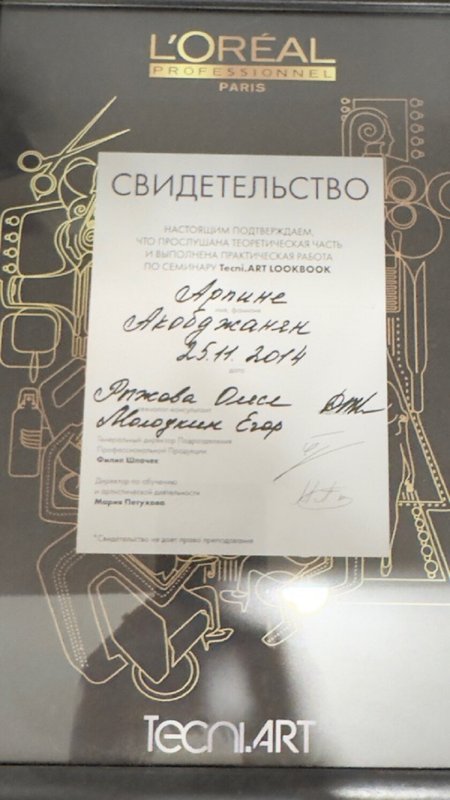 L'ORÉAL
PROFESSIONNEL
PARIS
СВИДЕТЕЛЬСТВО
НАСТОЯЩИМ ПОДТВЕРЖДАЕМ,
ЧТО ПРОСЛУШАНА ТЕОРЕТИЧЕСКАЯ ЧАСТЬ
И ВЫПОЛНЕНА ПРАКТИЧЕСКАЯ РАБОТА
ПО СЕМИНАРУ Tecni.ART LOOKBOOK
Арпине
имя, фамилия
Акобджанян
25.11.2014
дата
Олеся
технолог-консультант
Молодкин Егор
Генеральный директор Подразделения
Профессиональной Продукции
Филип Шпачек
Директор по обучению
и артистической деятельности
Мария Петухова
*Свидетельство не дает право преподавания
Tecni.ART